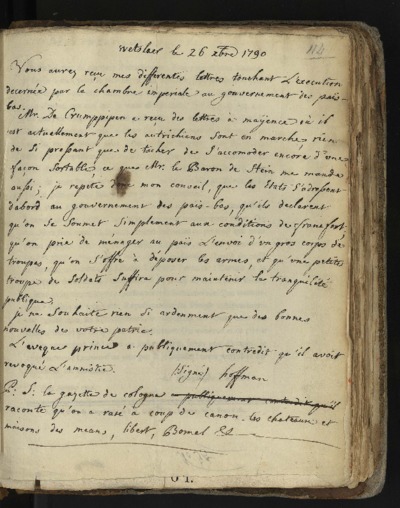 wetslaer le 26 xbre 1790
114
Vous aurez reçu mes differentes lettres touchant L'execution
decernée par la chambre imperiale au gouvernement des pais-
bas.
Mr. De Crumppipen a recu des lettres à mayence où il
est actuellement que les autrichiens sont en marche rien
de si pressant que de tacher de s'accomoder encore d'une
façon sortable, ce que Mr. le Baron de Stein me manda
aussi; je repete donc mon conseil, que les Etats s'adressent
d'abord au gouvernement des païs-bas, qu'ils declarent
qu'on se soumet simplement aux conditions de francfort
qu'on prie de menager au païs L'envoi d'un gros corps de
troupes, qu'on s'offre à deposer les armes, et qu'une petite
troupe de soldats suffira pour maintenir la tranquilité
publique.
je ne souhaite rien si ardemment que des bonnes
nouvelles de votre patrie.
L'eveque prince a publiquement contredit qu'il avoit
revoqué L'amnistie.
(signé) hoffman
P: S: la gazette de cologne publiquement contredit qu'il
raconte qu'on a rasé a coup de canon les chateaux et
maisons des means, libert, Bomel &a